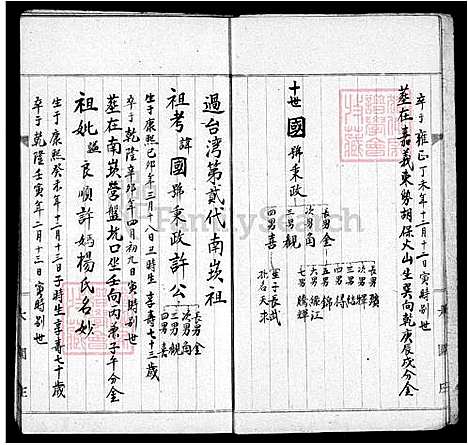 卒于雍正丁未年十二月十二日寅時別世
葬在嘉義東勢胡保火山坐巽向乾庚辰戌分金
十世 國 號秉政
長男金
次男角
三男觀
四男喜
長男
次男
三男穗
四男得
五男錦
六男緣江
七男輝
生子長成
孫名天求
過台湾第貳代南崁祖
祖考諱國號秉政許公
長男金
次男角
三男觀
四男喜
生于康熙己卯年三月十八日丑時生享壽七十三歲
卒于乾隆辛卯年四月初九日寅時別世
葬在南崁營盤坑口坐壬向丙兼子午分金
祖妣諡良順許媽楊氏名妙
生于康熙癸未年十二月十三日子時生享壽七十歲
卒于乾隆壬寅年二月十三日寅時別世
FamilySearch